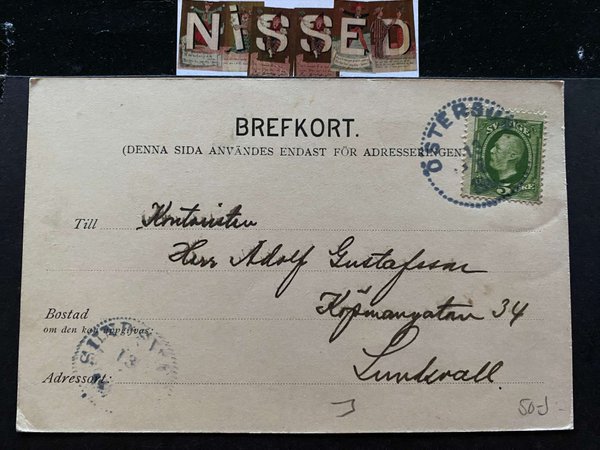 NiSSED
BREFKORT.
(DENNA SIDA ANVÄNDES ENDAST FÖR ADRESSERINGEN
ÖSTERSU
SVERIGE
5 ÖRE
Till Kontoristen
Herr Adolf Gustafsson
Bostad Köpmangatan 34
om den kan uppgifvas:
SUNDSVALL
13
Adressort: Sundsvall
50-